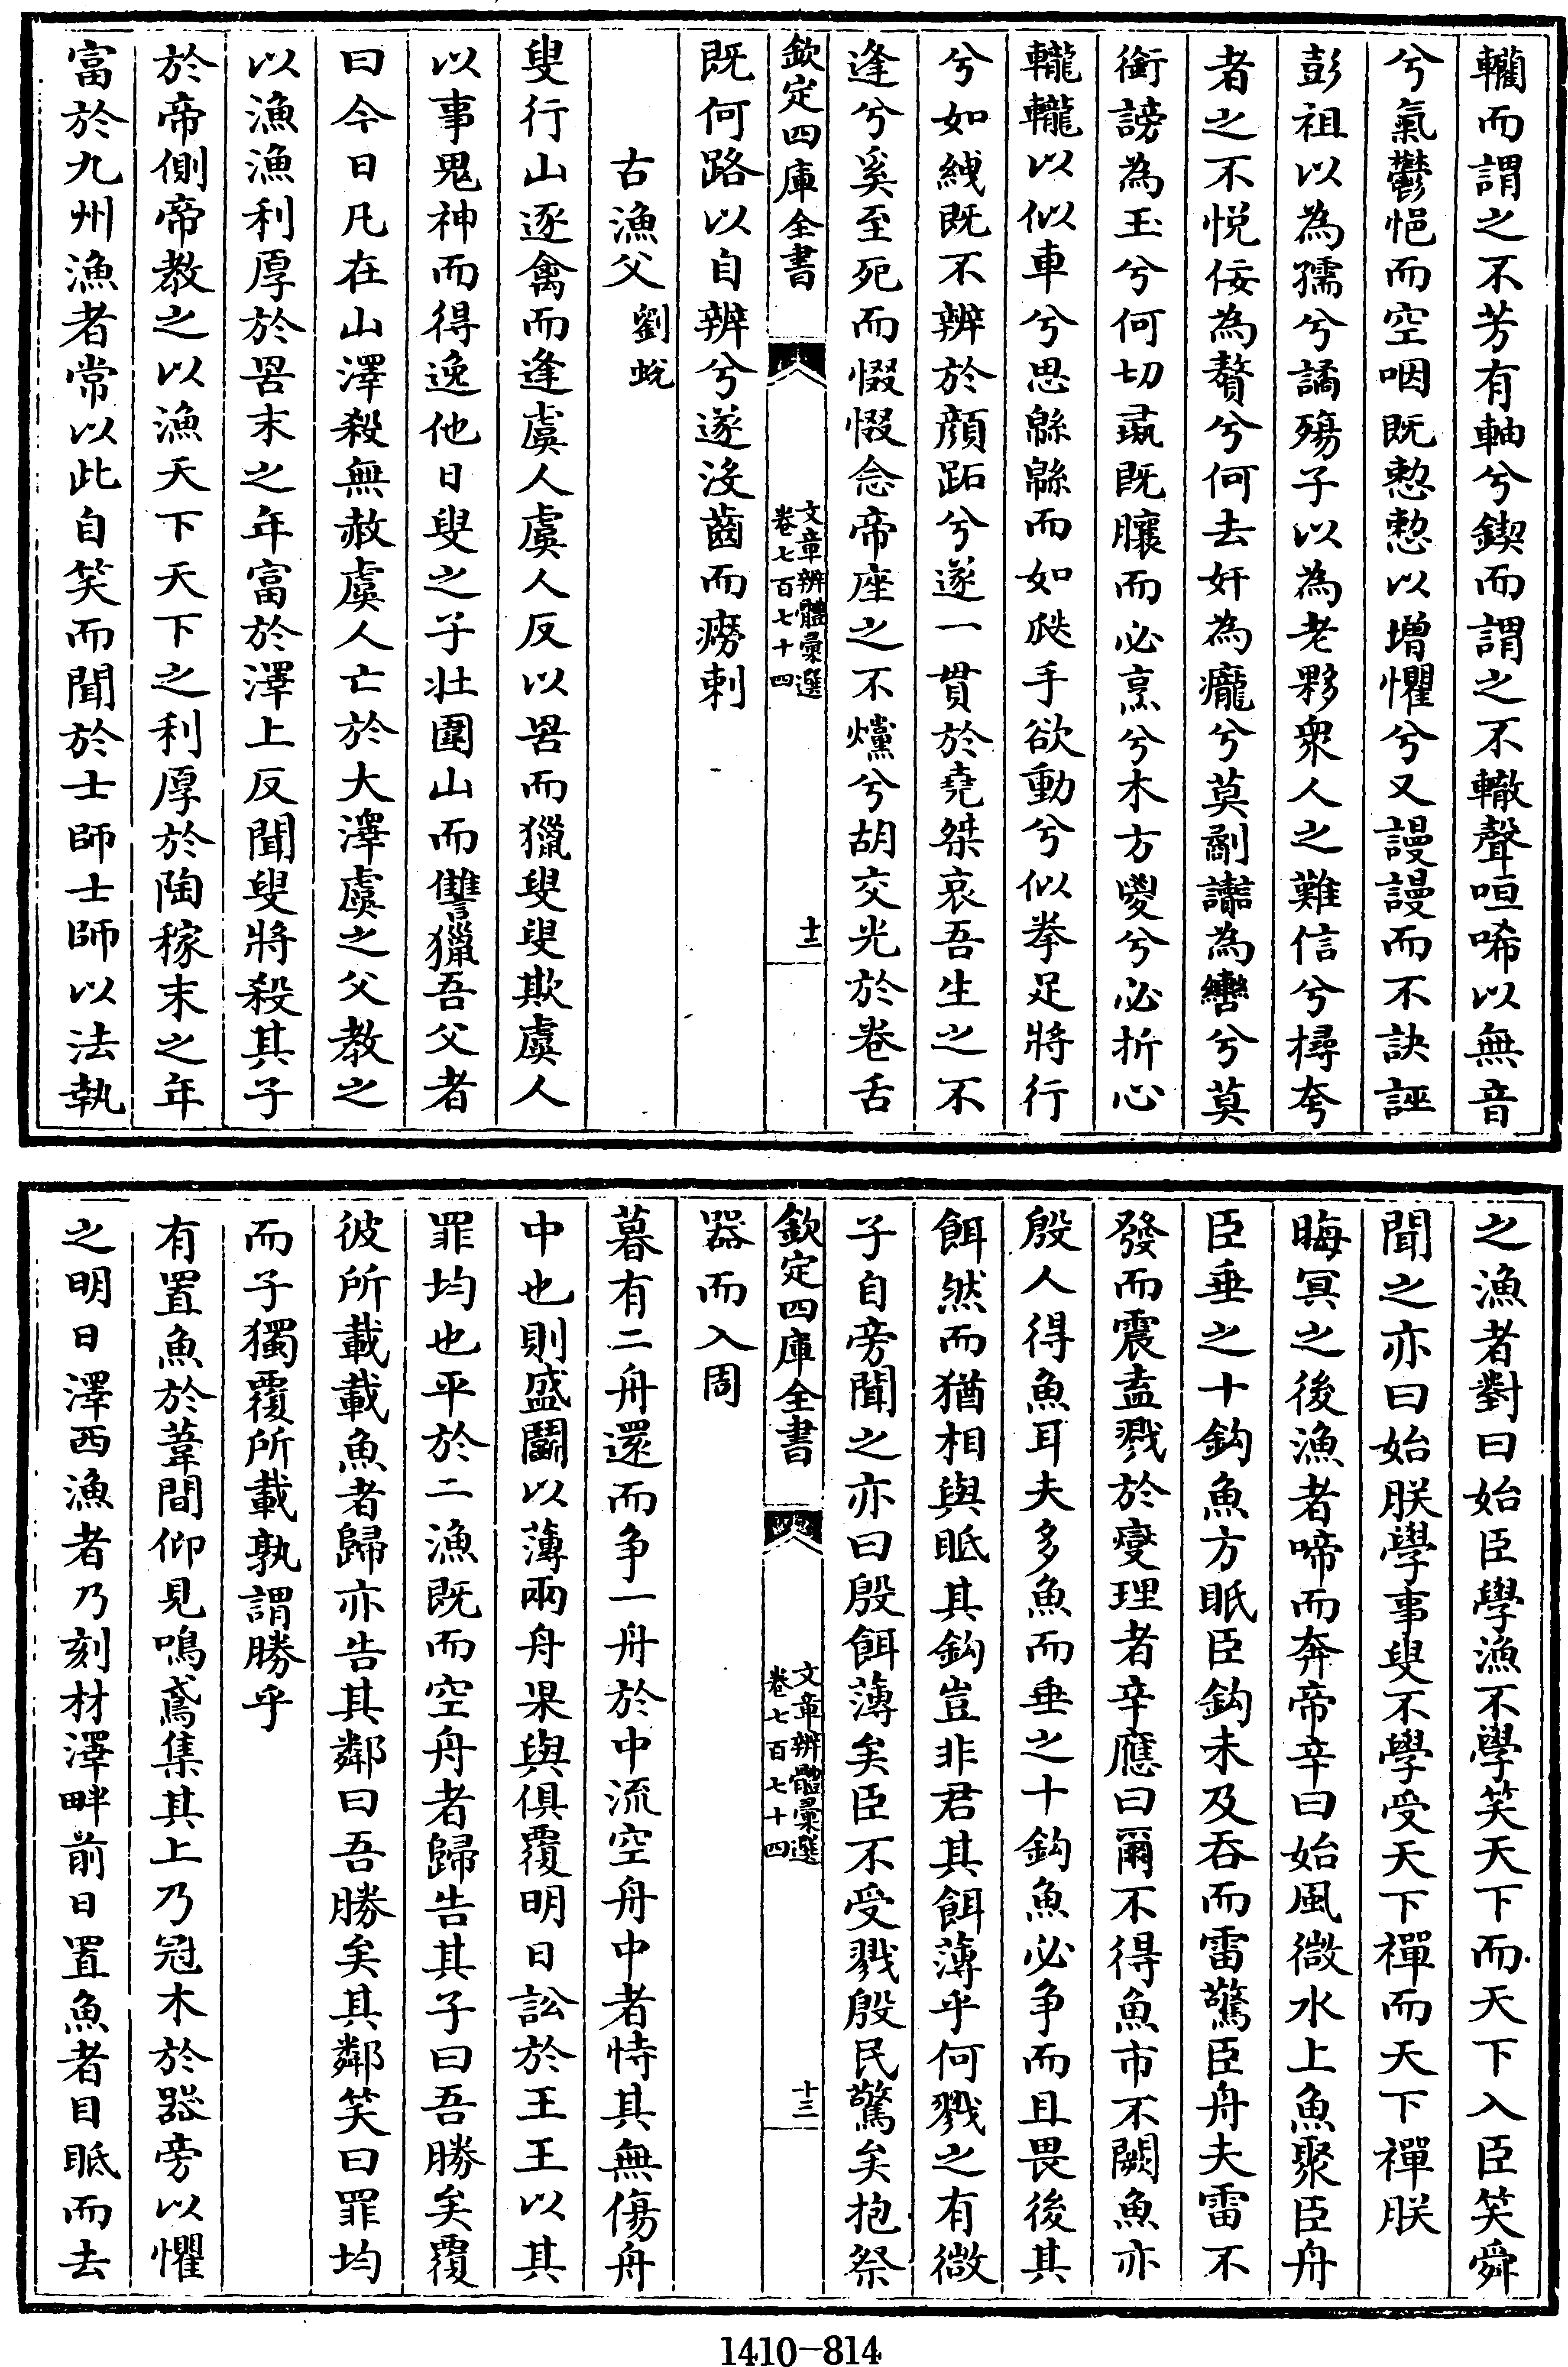 轥而謂之不芳有軸兮鍥而謂之不轍聲咺唏以無音
兮氣鬱悒而空咽既愸愸以增懼兮又謾謾而不訣誣
彭祖以為孺兮譎殤子以為老夥衆人之難信兮檮夸
者之不悦佞為贅兮何去奸為癰兮莫劀讟為轡兮莫
銜謗為玉兮何切蝨既臃而必烹兮木方癭兮必折心
轆轆以似車兮思緜緜而如瓞手欲動兮似拳足將行
兮如緤既不辨於顔跖兮遂一貫於堯桀哀吾生之不
逢兮奚至死而惙惙念帝座之不爣兮胡交光於卷舌
欽定四庫全書
文章辨體彙選
卷七百七十四
十二
既何路以自辨兮遂没齒而癆刺
古漁父 劉蛻
叟行山逐禽而逢虞人虞人反以罟而獵叟叟欺虞人
以事鬼神而得逸他日叟之子壯圍山而讐獵吾父者
曰今日凡在山澤殺無赦虞人亡於大澤虞之父教之
以漁漁利厚於罟末之年富於澤上反聞叟將殺其子
於帝側帝教之以漁天下天下之利厚於陶稼末之年
富於九州漁者常以此自笑而聞於士師士師以法執
之漁者對曰始臣學漁不學笑天下而天下入臣笑舜
聞之亦曰始朕學事叟不學受天下禪而天下禪朕
晦冥之後漁者啼而奔帝辛曰始風微水上魚聚臣舟
臣垂之十鈎魚方眂臣鈎未及吞而雷驚臣舟夫雷不
發而震盍戮於燮理者辛應曰爾不得魚市不闕魚亦
殷人得魚耳夫多魚而垂之十鈎魚必争而且畏後其
餌然而猶相與眡其鈎豈非君其餌薄乎何戮之有微
子自旁聞之亦曰殷餌薄矣臣不受戮殷民驚矣抱祭
欽定四庫全書
文章辨體彙選
卷七百七十四
十三
器而入周
暮有二舟還而争一舟於中流空舟中者恃其無傷舟
中也則盛鬭以薄兩舟果與俱覆明日訟於王王以其
罪均也平於二漁既而空舟者歸告其子曰吾勝矣覆
彼所載載魚者歸亦告其鄰曰吾勝矣其鄰笑曰罪均
而子獨覆所載孰謂勝乎
有置魚於葦間仰見鳴鳶集其上乃冠木於器旁以懼
之明日澤西漁者乃刻材澤畔前日置魚者目眡而去
1410-814